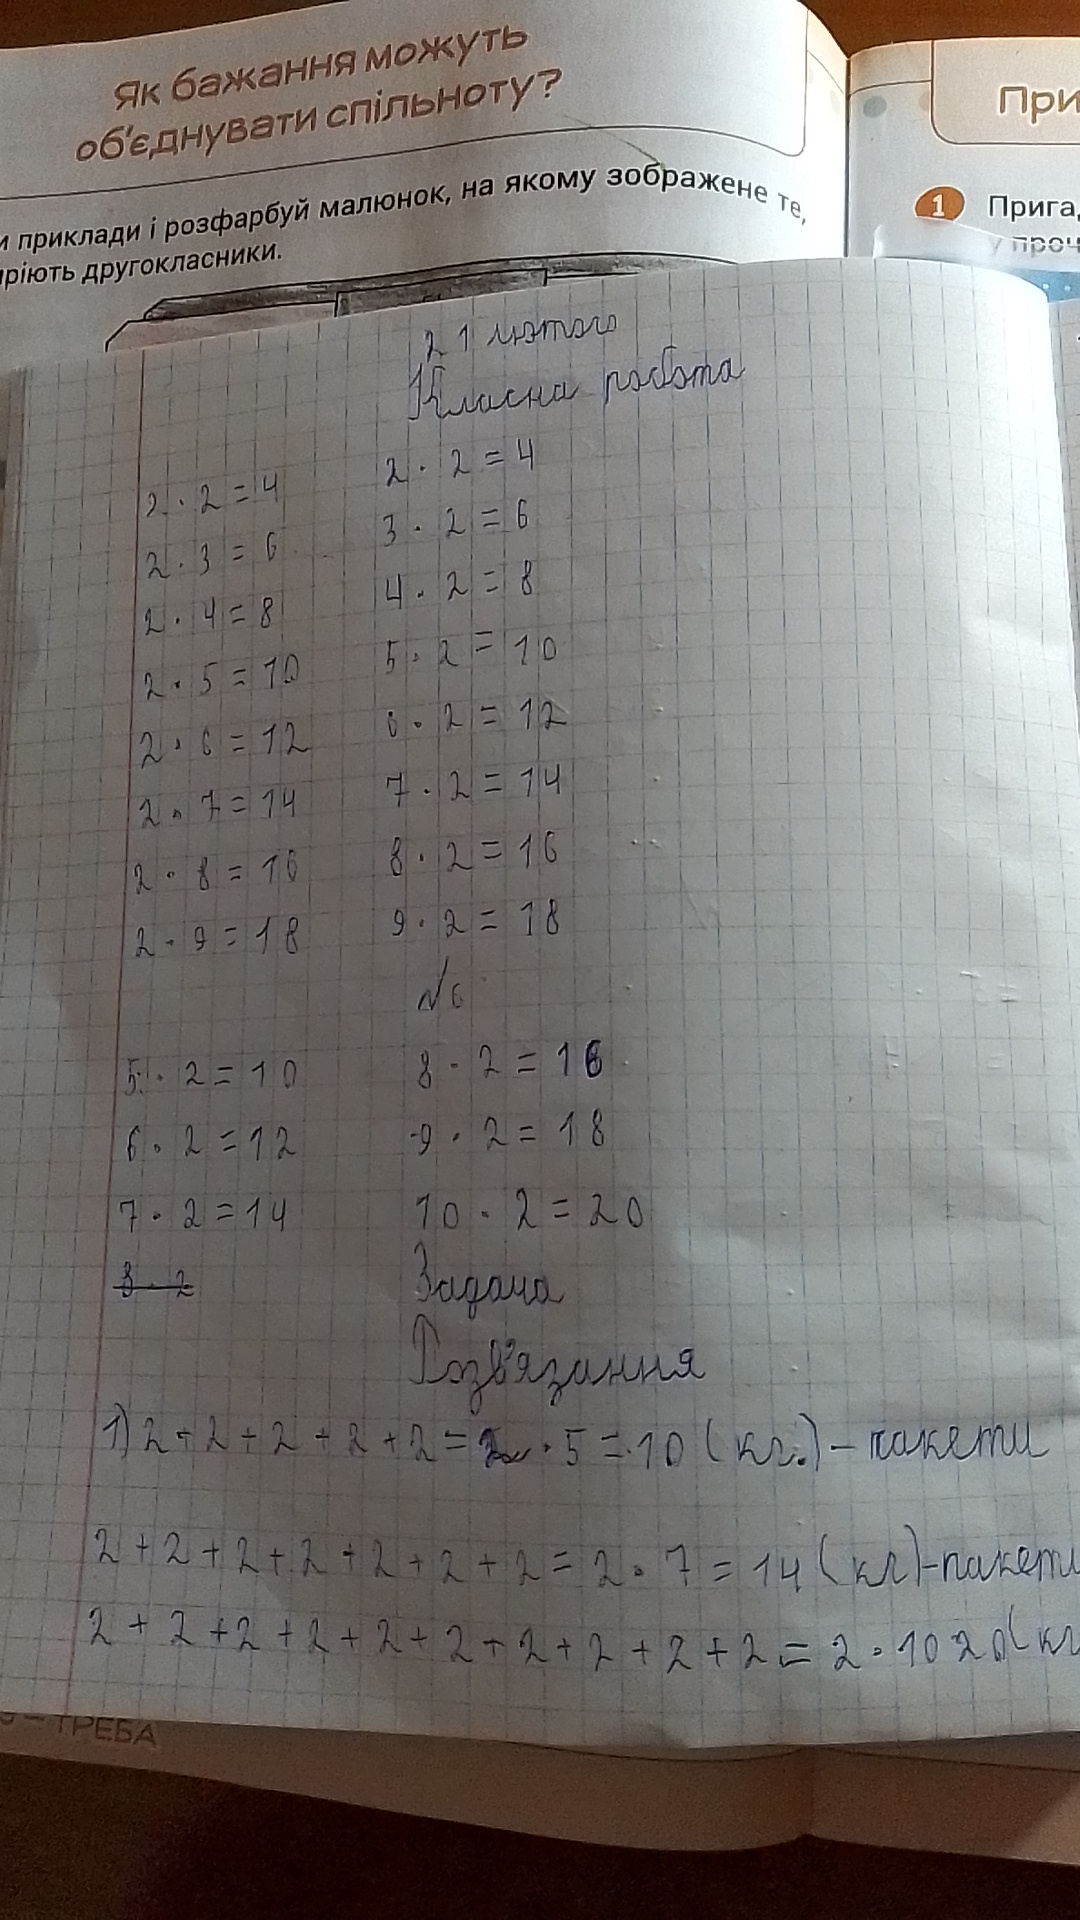 Як бажання можуть
об'єднувати спільноту?
При
и приклади і розфарбуй малюнок, на якому зображене те,
ріють другокласники.
1 Прига
у проч
21 лютого
Класна робота
2 · 2 = 4 2 · 2 = 4
2 · 3 = 6 3 · 2 = 6
2 · 4 = 8 4 · 2 = 8
2 · 5 = 10 5 · 2 = 10
2 · 6 = 12 6 · 2 = 12
2 · 7 = 14 7 · 2 = 14
2 · 8 = 16 8 · 2 = 16
2 · 9 = 18 9 · 2 = 18
№6
5 · 2 = 10 8 · 2 = 16
6 · 2 = 12 9 · 2 = 18
7 · 2 = 14 10 · 2 = 20
8 · 2 Задача
Розв'язання
1) 2 + 2 + 2 + 2 + 2 = 2 · 5 = 10 (кг.) – пакети
2 + 2 + 2 + 2 + 2 + 2 + 2 = 2 · 7 = 14 (кг) – пакети
2 + 2 + 2 + 2 + 2 + 2 + 2 + 2 + 2 + 2 = 2 · 10 20 (кг
ТРЕБА